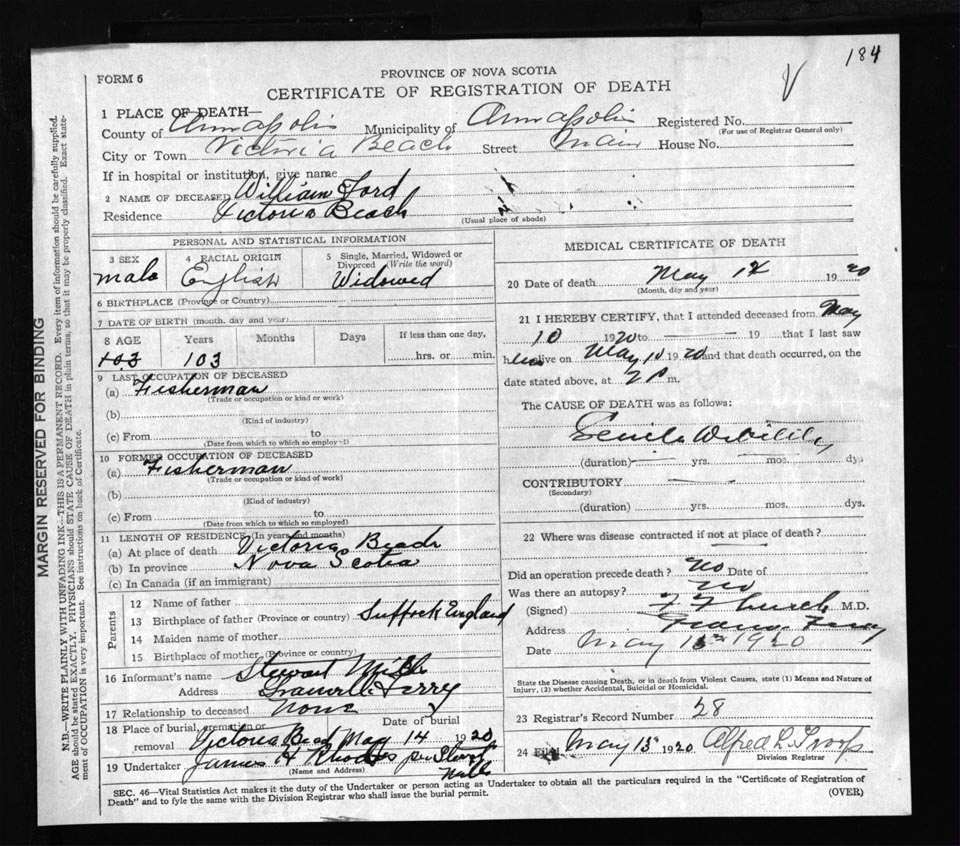 184
FORM 6
PROVINCE OF NOVA SCOTIA
CERTIFICATE OF REGISTRATION OF DEATH
1 PLACE OF DEATH—
County of Annapolis Municipality of Annapolis Registered No.
(For use of Registrar General only)
City or Town Victoria Beach Street Main House No.
If in hospital or institution, give name
2 NAME OF DECEASED William Ford
Residence Victoria Beach
(Usual place of abode)
PERSONAL AND STATISTICAL INFORMATION
3 SEX 4 RACIAL ORIGIN 5 Single, Married, Widowed or Divorced (Write the word)
Male English Widowed
6 BIRTHPLACE (Province or Country)
7 DATE OF BIRTH (month, day and year)
8 AGE Years Months Days If less than one day,
103 103 hrs. or min.
9 LAST OCCUPATION OF DECEASED
(a) Fisherman
(Trade or occupation or kind or work)
(b)
(Kind of industry)
(c) From to
(Date from which to which so employed)
10 FORMER OCCUPATION OF DECEASED
(a) Fisherman
(Trade or occupation or kind of work)
(b)
(Kind of industry)
(c) From to
(Date from which to which so employed)
11 LENGTH OF RESIDENCE (In years and months)
(a) At place of death Victoria Beach
(b) In province Nova Scotia
(c) In Canada (if an immigrant)
Parents
12 Name of father
13 Birthplace of father (Province or country) Suffock England
14 Maiden name of mother
15 Birthplace of mother (Province or country)
16 Informant's name Stewart
Address Granville Ferry
17 Relationship to deceased None
18 Place of burial, cremation or removal Victoria Beach Date of burial May 14 1920
19 Undertaker James H Rhodes per
(Name and Address)
MEDICAL CERTIFICATE OF DEATH
20 Date of death May 12 1920
(Month, day and year)
21 I HEREBY CERTIFY, that I attended deceased from May
10 1920 to 19 that I last saw
him alive on May 10 1920 and that death occurred, on the
date stated above, at 2 P m.
The CAUSE OF DEATH was as follows:
Senile Debility
(duration) yrs. mos. dys
CONTRIBUTORY
(Secondary)
(duration) yrs. mos. dys.
22 Where was disease contracted if not at place of death?
Did an operation precede death? No Date of
Was there an autopsy? No
(Signed) M.D.
Address
Date May 1920
State the Disease causing Death, or in Death from Violent Causes, state (1) Means and Nature of
Injury, (2) whether Accidental, Suicidal or Homicidal.
23 Registrar's Record Number 28
24 Filed May 15 1920 Alfred L.
Division Registrar
SEC. 46—Vital Statistics Act makes it the duty of the Undertaker or person acting as Undertaker to obtain all the particulars required in the "Certificate of Registration of
Death" and to fyle the same with the Division Registrar who shall issue the burial permit.
(OVER)
MARGIN RESERVED FOR BINDING
N.B.—WRITE PLAINLY WITH UNFADING INK—THIS IS A PERMANENT RECORD. Every item of information should be carefully supplied.
AGE should be stated EXACTLY. PHYSICIANS should STATE CAUSE OF DEATH in plain terms, so that it may be properly classified. Exact state-
ment of OCCUPATION is very important. See instructions on back of Certificate.